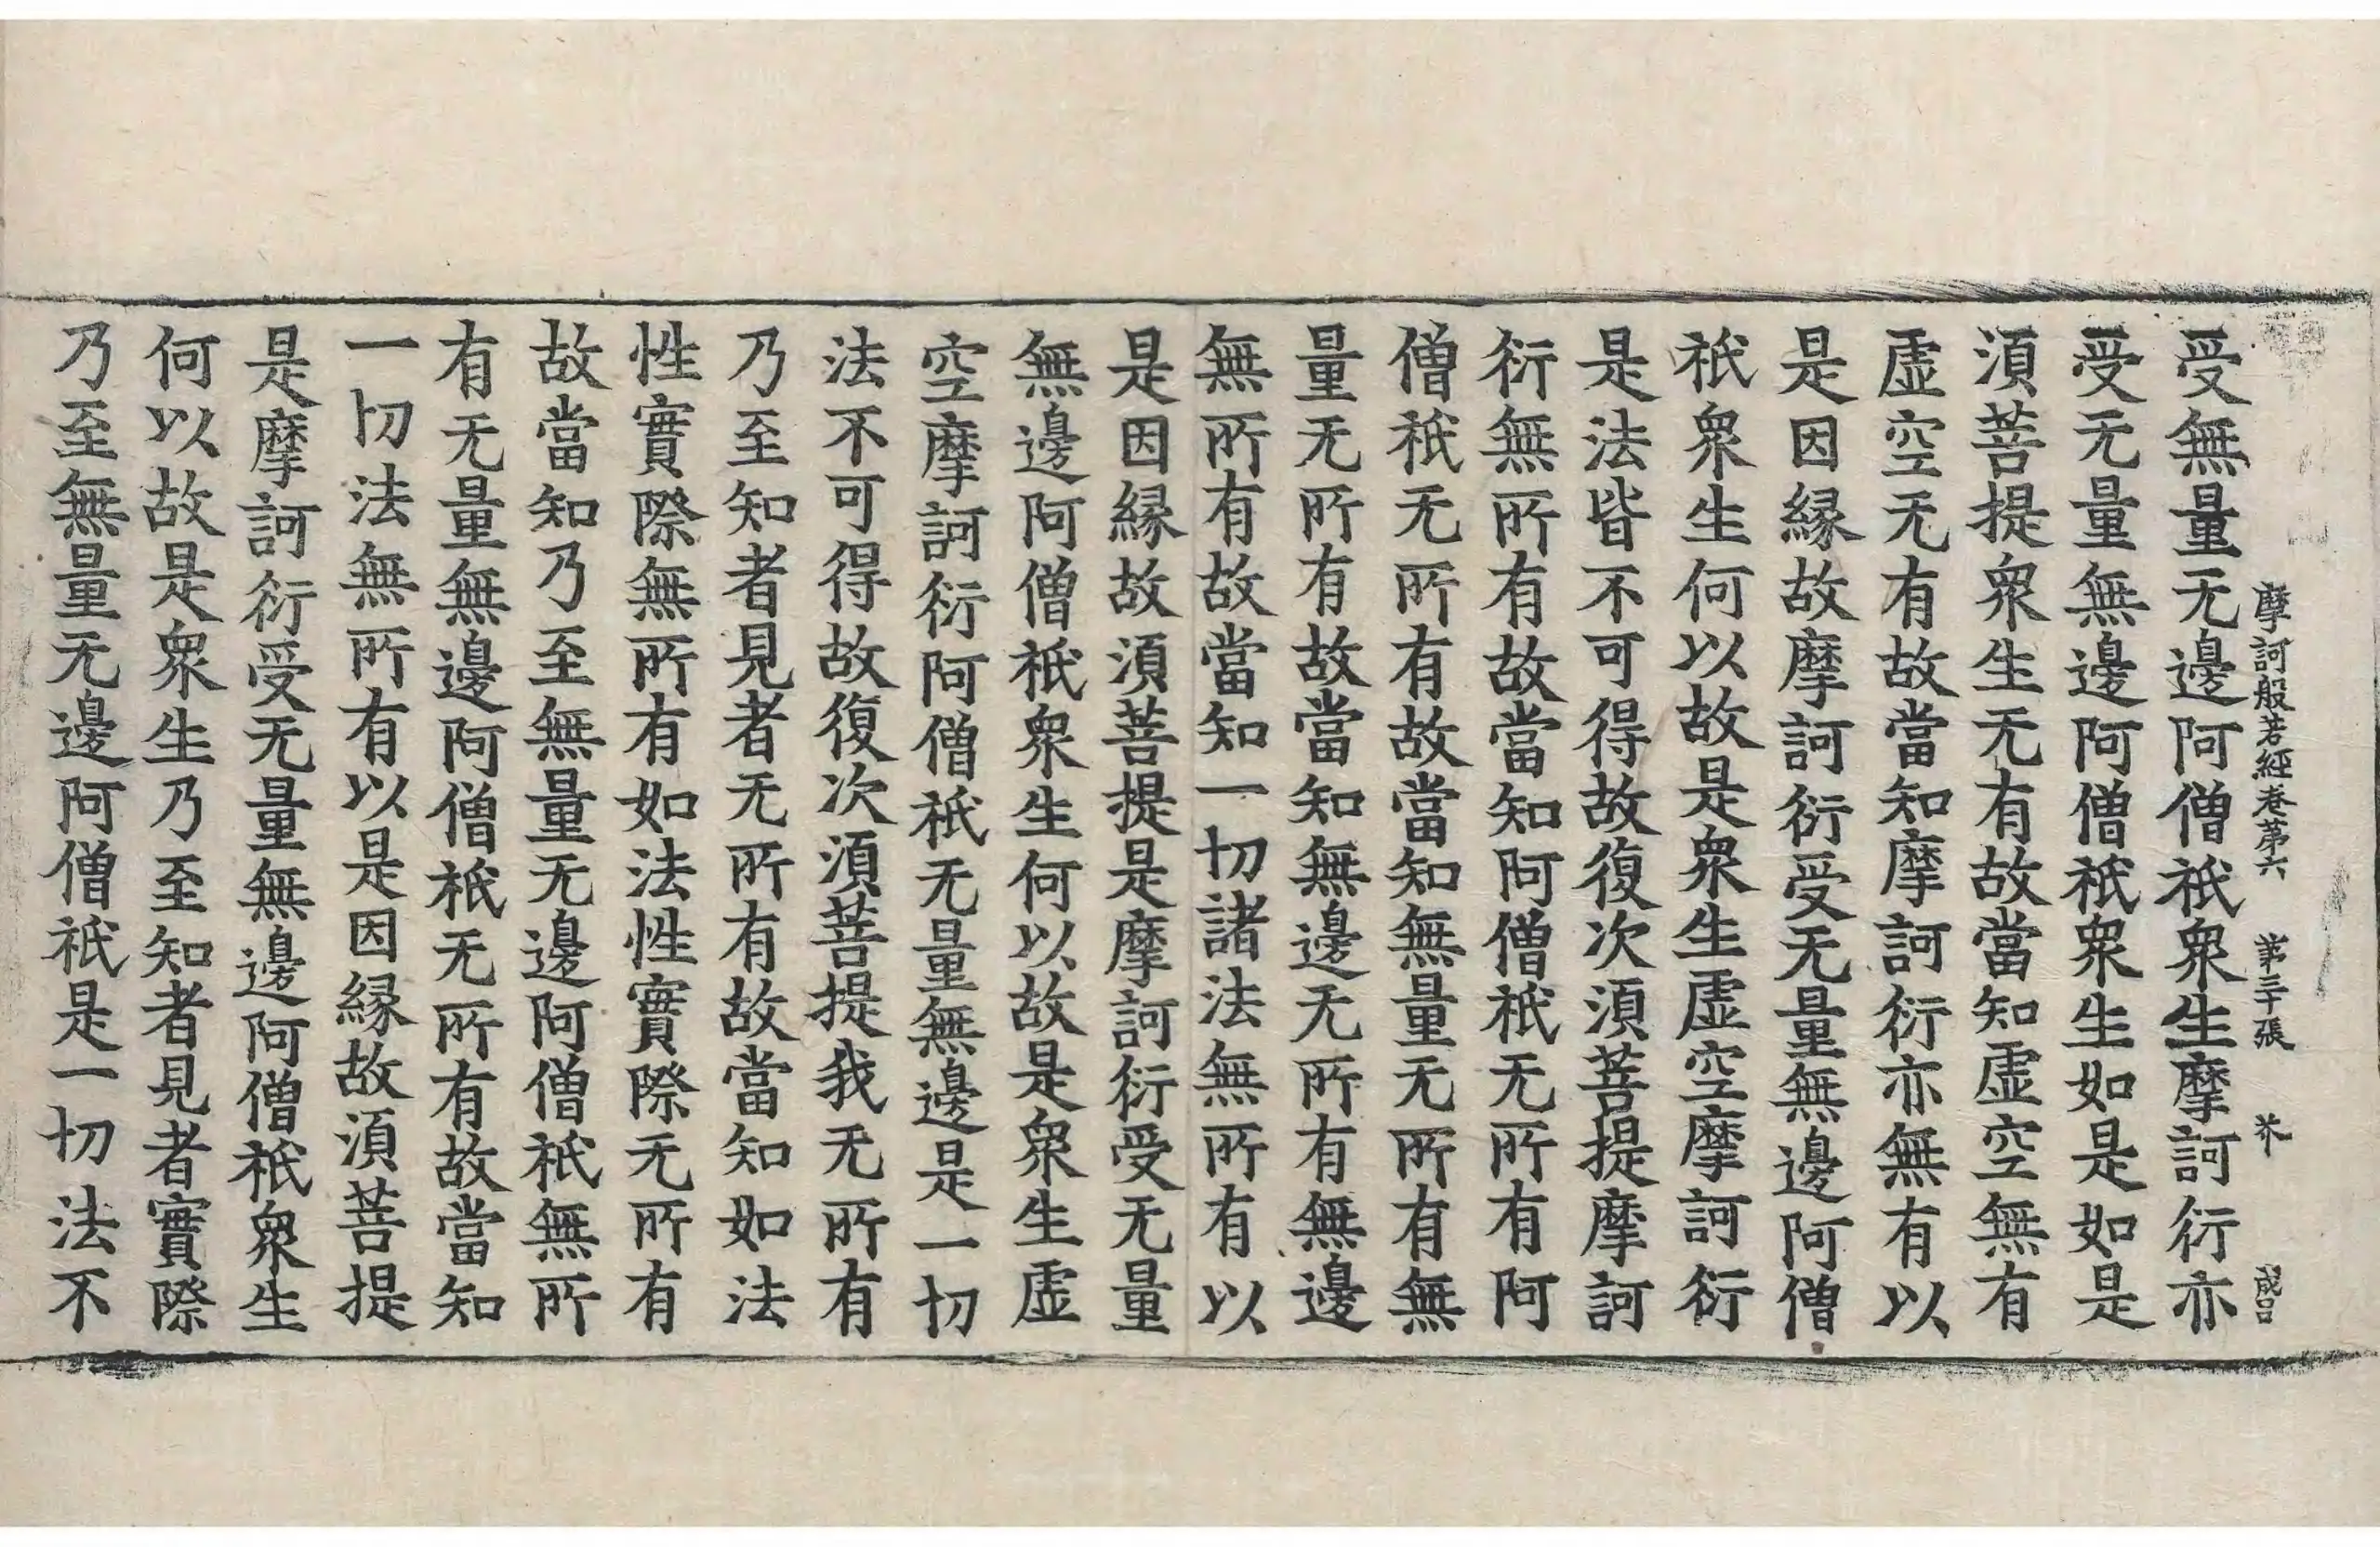 摩訶般若經卷第六 第三十張 芥
受無量无邊阿僧祇衆生摩訶衍亦
受无量無邊阿僧祇衆生如是如是
湏菩提衆生无有故當知虛空無有
虛空无有故當知摩訶衍亦無有以
是因緣故摩訶衍受无量無邊阿僧
祇衆生何以故是衆生虛空摩訶衍
是法皆不可得故復次湏菩提摩訶
衍無所有故當知阿僧祇无所有阿
僧祇无所有故當知無量无所有無
量无所有故當知無邊无所有無邊
無所有故當知一切諸法無所有以
是因緣故湏菩提是摩訶衍受无量
無邊阿僧祇衆生何以故是衆生虛
空摩訶衍阿僧祇无量無邊是一切
法不可得故復次湏菩提我无所有
乃至知者見者无所有故當知如法
性實際無所有如法性實際无所有
故當知乃至無量无邊阿僧祇無所
有无量無邊阿僧祇无所有故當知
一切法無所有以是因緣故湏菩提
是摩訶衍受无量無邊阿僧祇衆生
何以故是衆生乃至知者見者實際
乃至無量无邊阿僧祇是一切法不